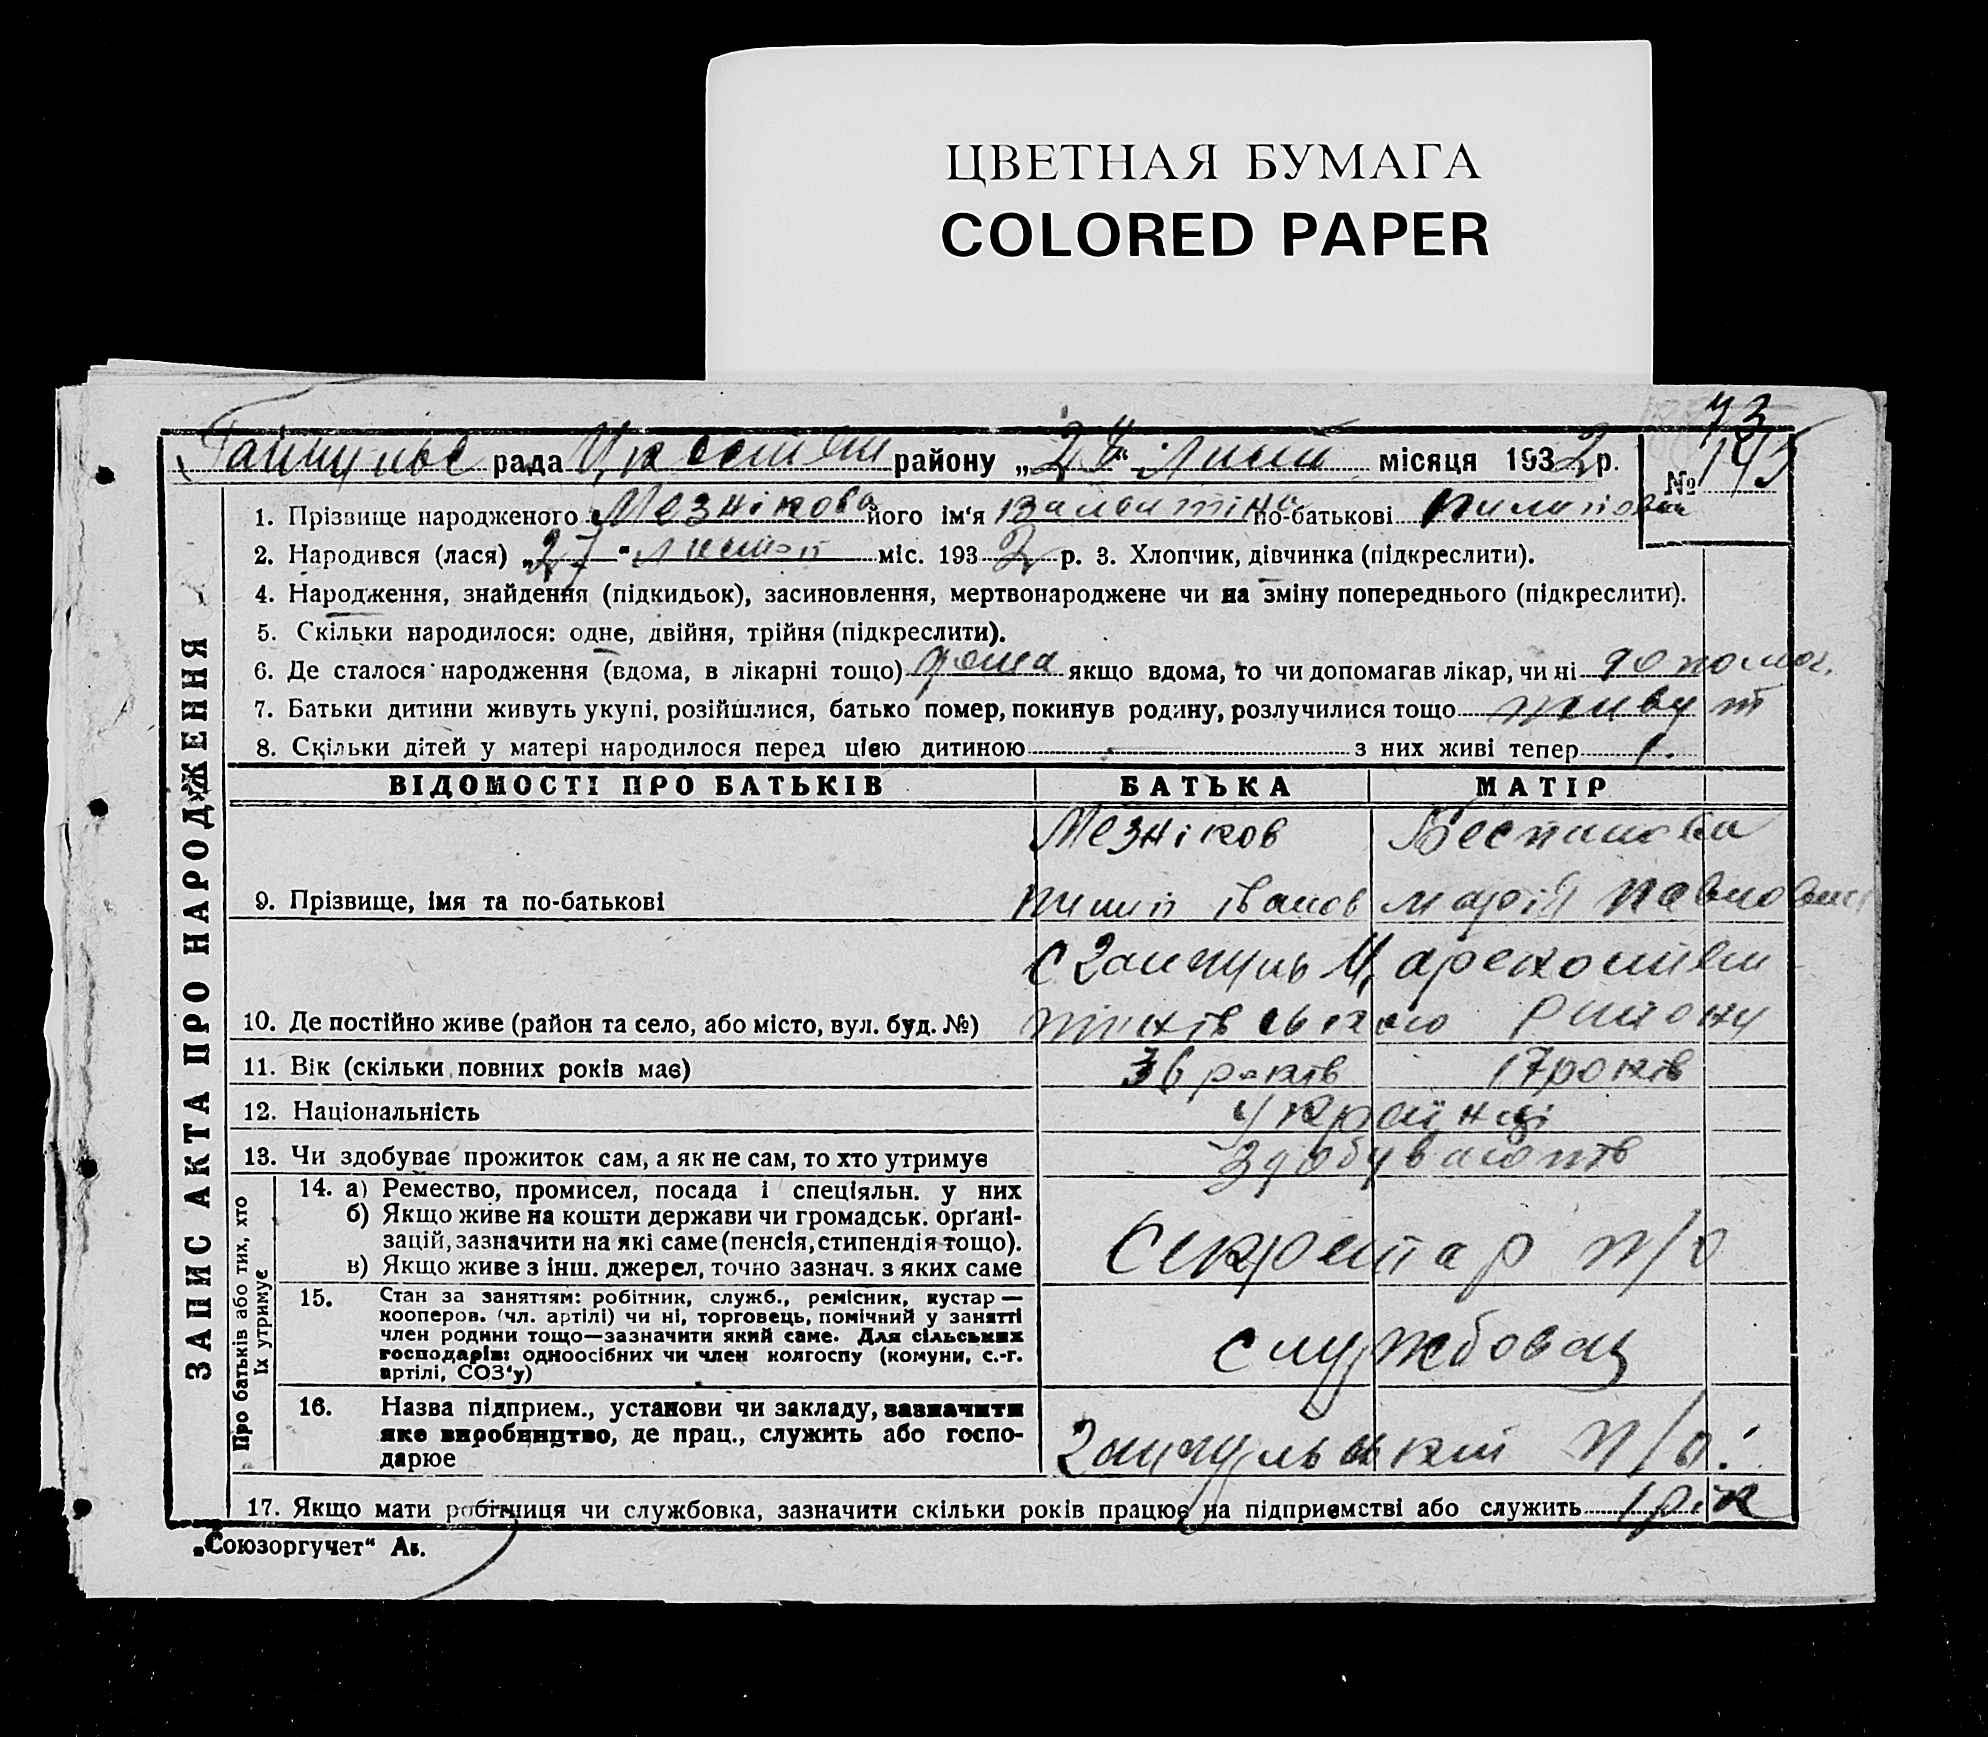 ЦВЕТНАЯ БУМАГА
COLORED PAPER
73
рада району „ “ місяця 1932 р. № 145
1. Прізвище народженого Мезнікова його ім‘я Валентіна по-батькові Пилипова
2. Народився (лася) „27“ листоп міс. 1932 р. 3. Хлопчик, дівчинка (підкреслити).
4. Народження, знайдення (підкидьок), засиновлення, мертвонароджене чи на зміну попереднього (підкреслити).
5. Скільки народилося: одне, двійня, трійня (підкреслити).
6. Де сталося народження (вдома, в лікарні тощо) дома якщо вдома, то чи допомагав лікар, чи ні допомог.
7. Батьки дитини живуть укупі, розійшлися, батько помер, покинув родину, розлучилися тощо живут
8. Скільки дітей у матері народилося перед цією дитиною з них живі тепер 1.
ЗАПИС АКТА ПРО НАРОДЖЕННЯ
ВІДОМОСТІ ПРО БАТЬКІВ БАТЬКА МАТІР
Мезніков
9. Прізвище, імя та по-батькові Пилип Іванов Марія Павловна
10. Де постійно живе (район та село, або місто, вул. буд. №) району
11. Вік (скільки повних років має) 36 років 17 років
12. Національність Українці
13. Чи здобуває прожиток сам, а як не сам, то хто утримує Здобувають
Про батьків або тих, хто
їх утримує
14. а) Ремество, промисел, посада і спеціяльн. у них
б) Якщо живе на кошти держави чи громадськ. орґані-
зацій, зазначити на які саме (пенсія, стипендія тощо).
в) Якщо живе з інш. джерел, точно зазнач. з яких саме
Секретар п/о
15. Стан за заняттям: робітник, служб., ремісник, кустар —
кооперов. (чл. артілі) чи ні, торговець, помічний у занятті
член родини тощо—зазначити який саме. Для сільських
господарів: одноосібних чи член колгоспу (комуни, с.-г.
артілі, СОЗ‘у)
службовец
16. Назва підприєм., установи чи закладу, зазначити
яке виробництво, де прац., служить або госпо-
дарює
п/о.
17. Якщо мати робітниця чи службовка, зазначити скільки років працює на підприємстві або служить 1 рік
„Союзоргучет“ Ав.